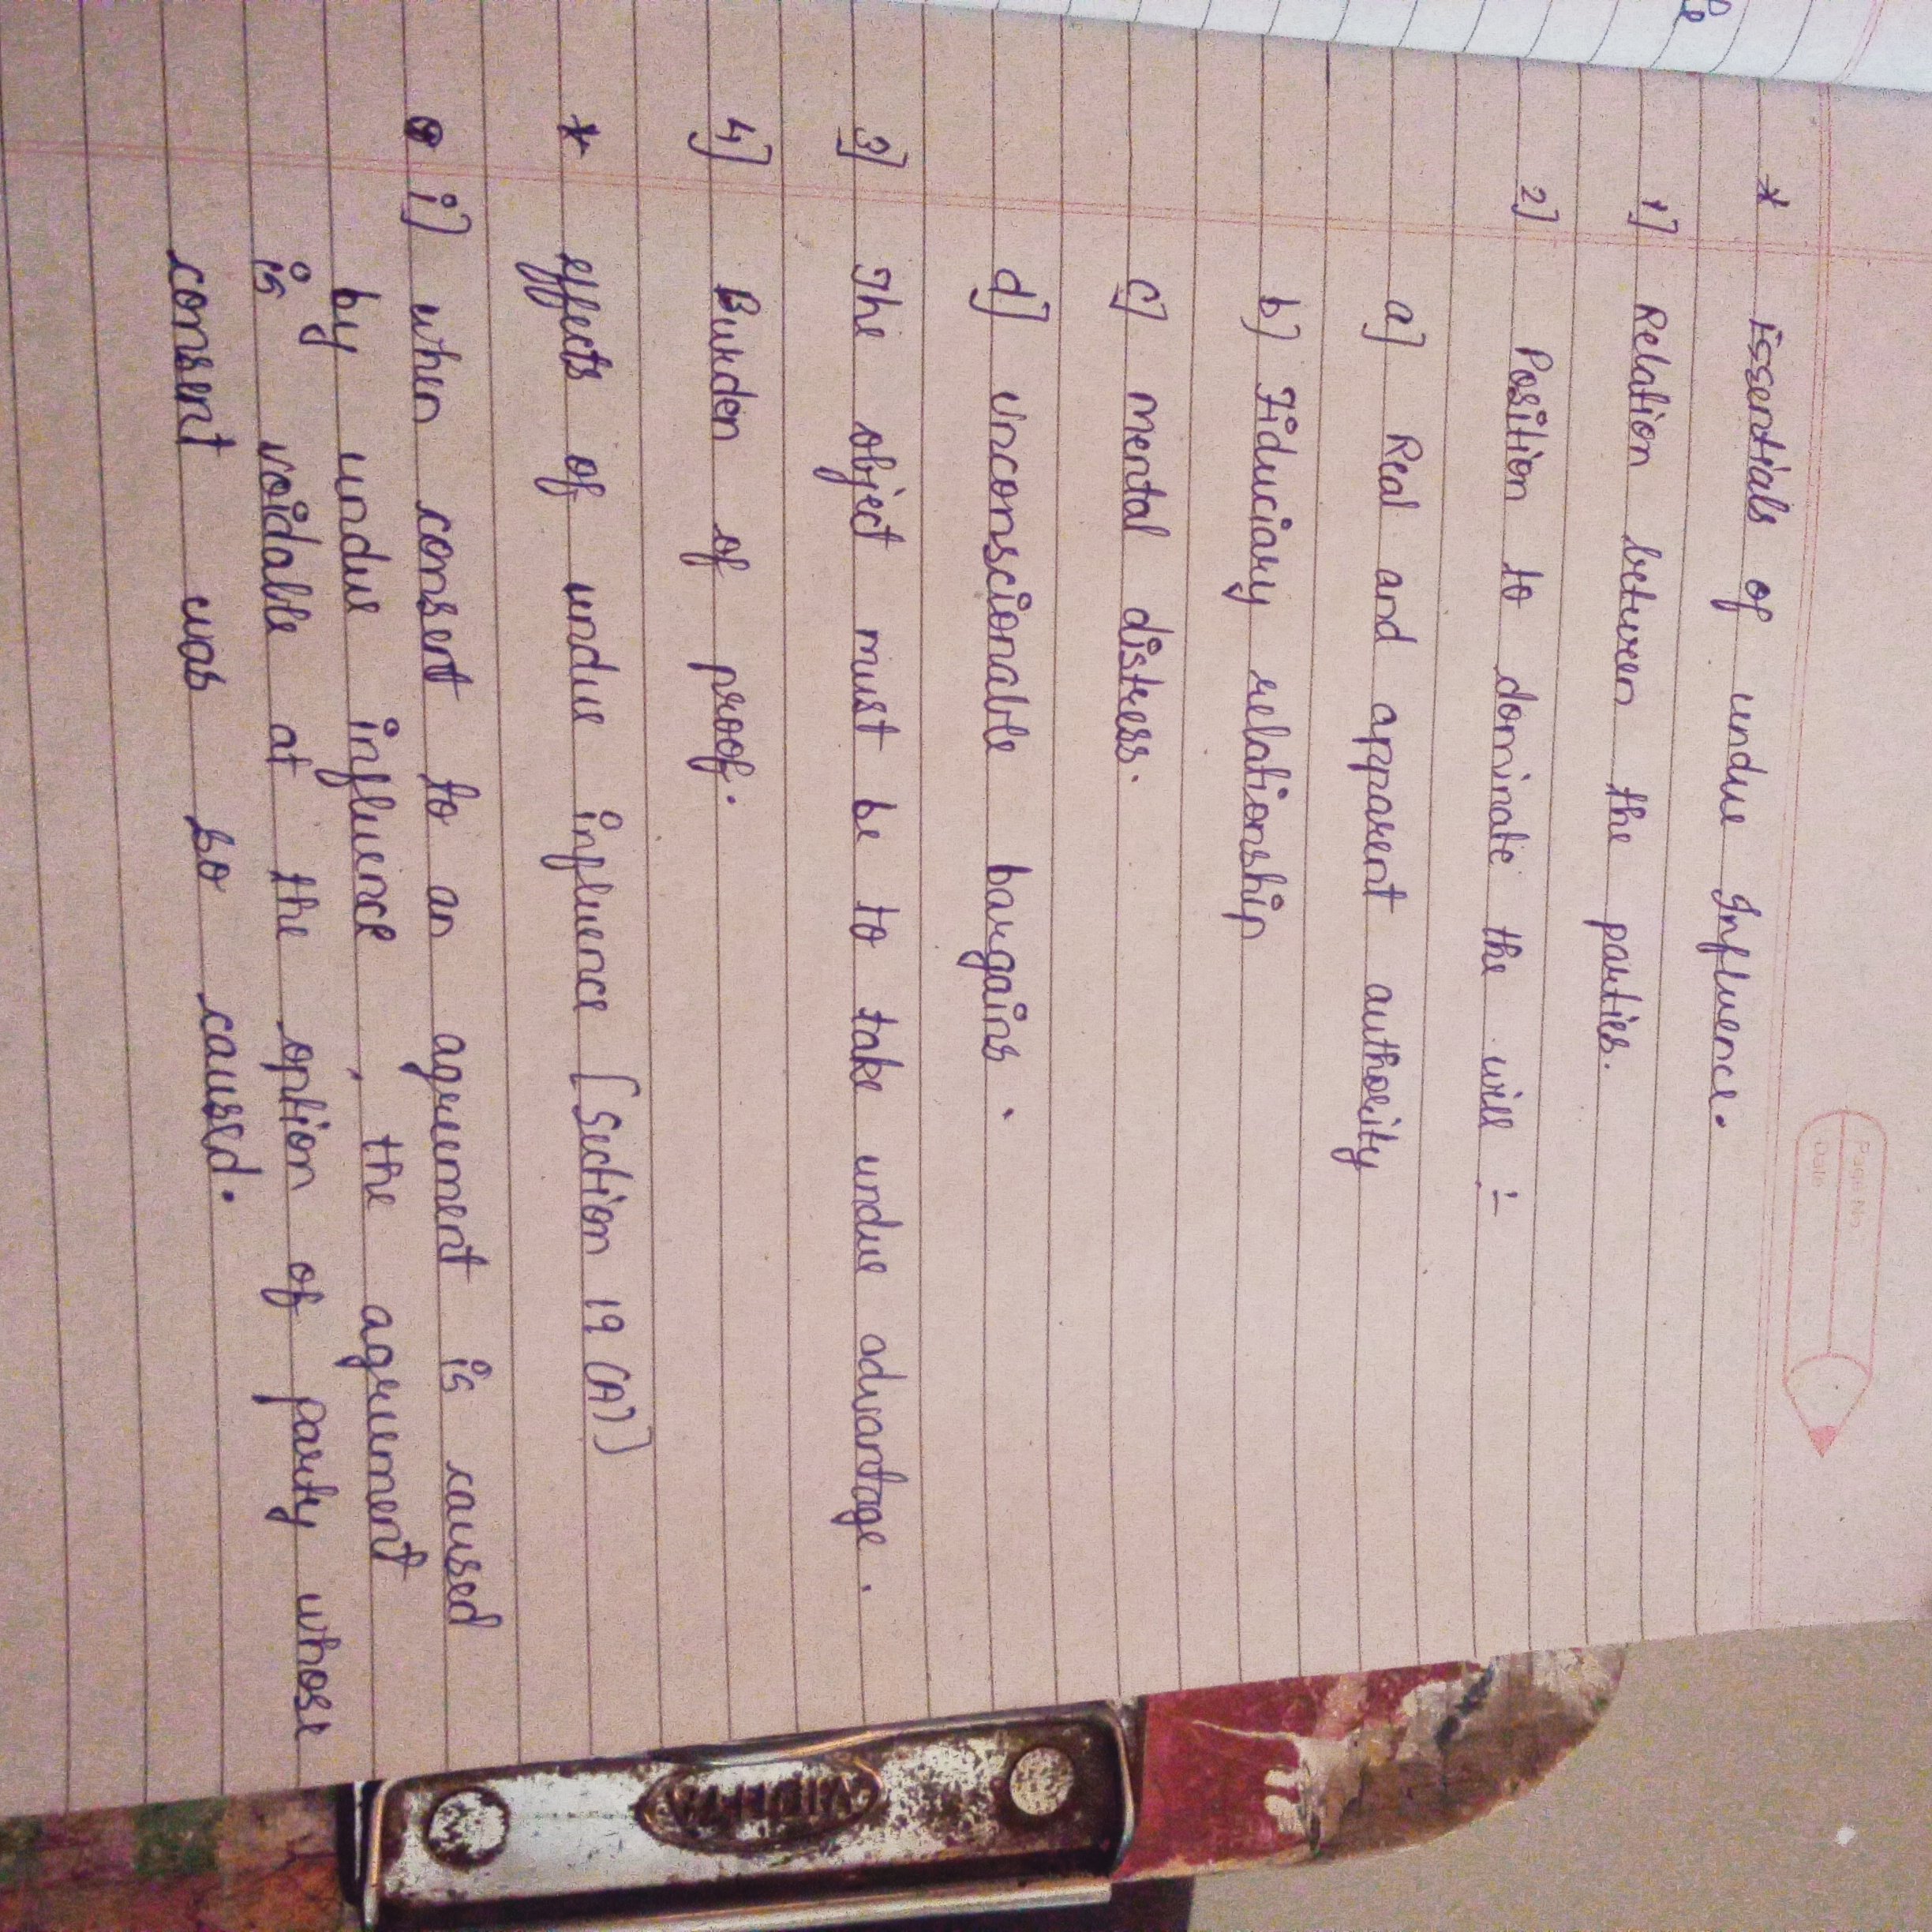 Page No.
Date
* Essentials of undue Influence.
1] Relation between the parties.
2] Position to dominate the will :-
a] Real and apparent authority
b] Fiduciary relationship
c] mental distress.
d] unconscionable bargains.
3] The object must be to take undue advantage.
4] Burden of proof.
* effects of undue influence [Section 19 (A)]
i] when consent to an agreement is caused
by undue influence, the agreement
is voidable at the option of party whose
consent was so caused.